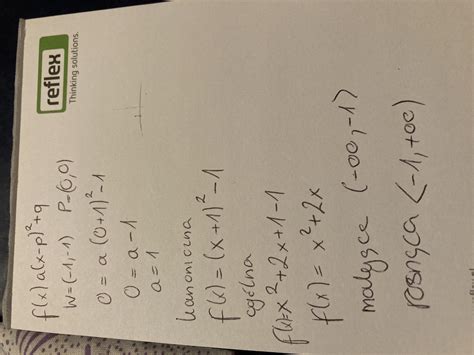 reflex
Thinking solutions.
f(x) a(x-p)²+q
W=(-1,-1) P=(0,0)
0=a(0+1)²-1
0=a-1
a=1
kanoniczna
f(x)=(x+1)²-1
ogólna
f(x)=x²+2x+1-1
f(x)=x²+2x
malejące (-∞,-1>
rosnąca <-1,+∞)